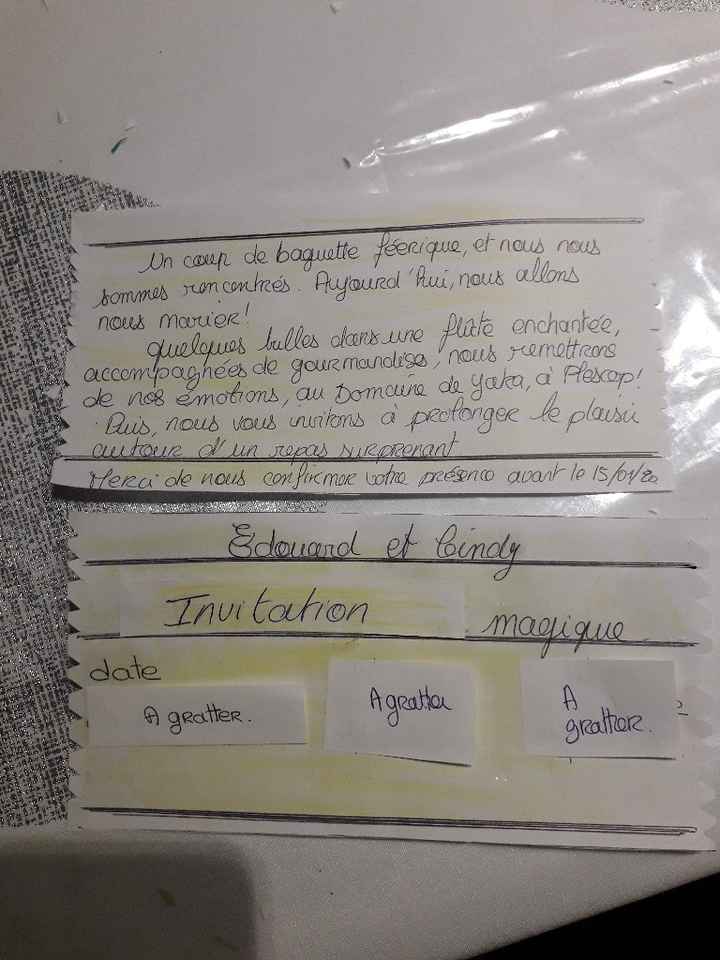 Un coup de baguette féerique, et nous nous
sommes rencontrés. Aujourd'hui, nous allons
nous marier!
quelques bulles dans une flûte enchantée,
accompagnées de gourmandises, nous remettrons
de nos émotions, au Domaine de Yaka, à Plescop!
Puis, nous vous invitons à prolonger le plaisir
autour d'un repas surprenant
Merci de nous confirmer votre présence avant le 15/01/20
Edouard et Cindy
Invitation magique
date
A gratter.
A gratter
A
gratter.